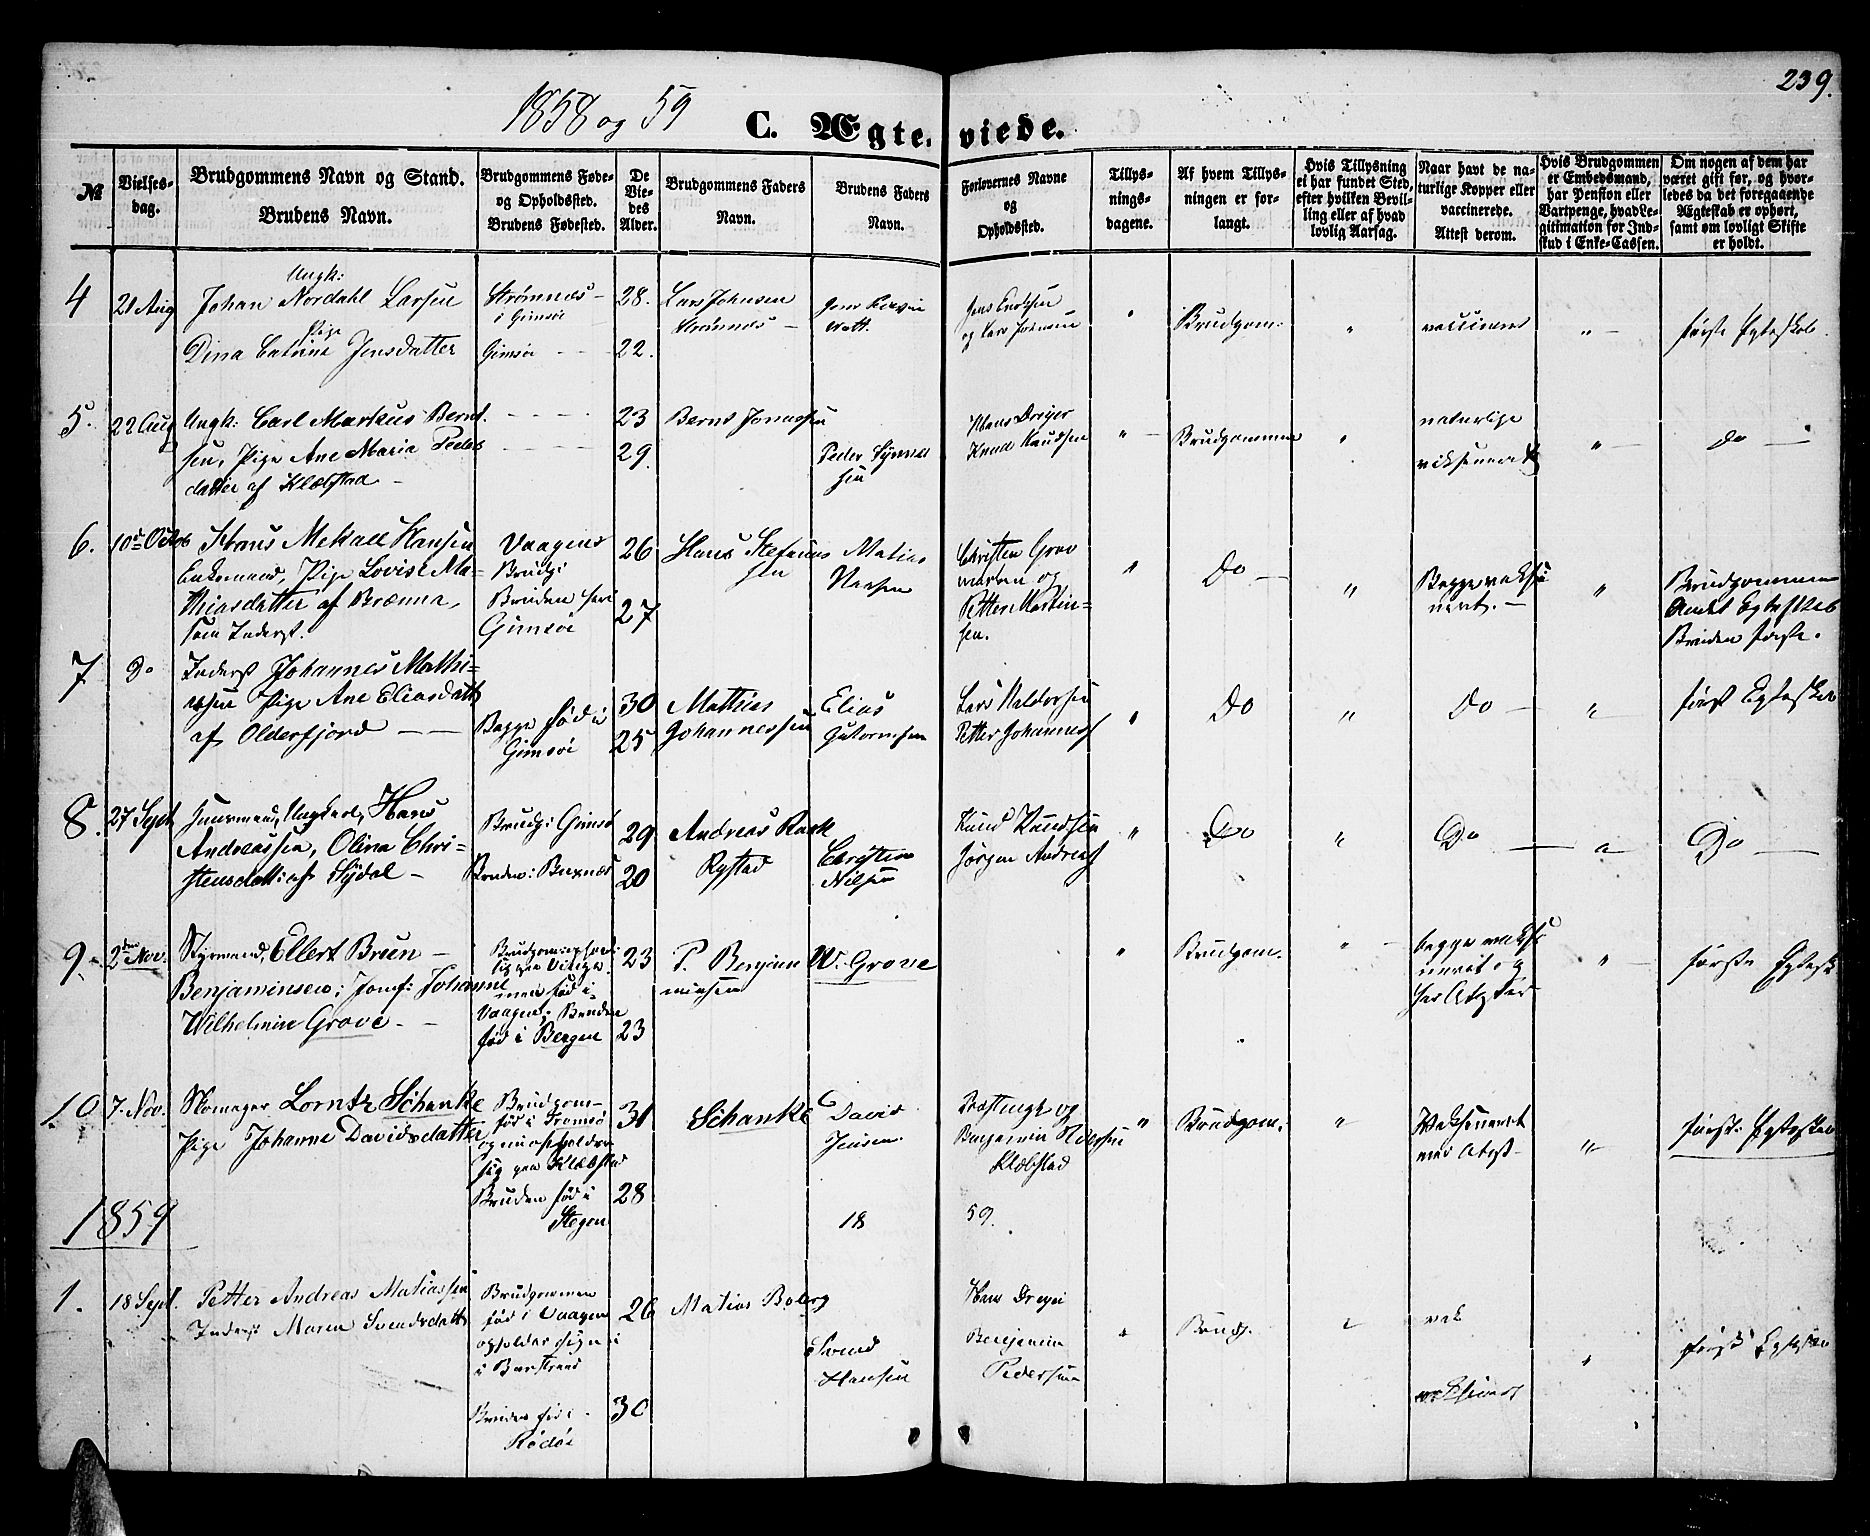 239.
1858 og 59
C. Ægte. viede.
№
Vielses-
dag.
Brudgommens Navn og Stand.
Brudens Navn.
Brudgommens Føde-
og Opholdsted.
Brudens Fødested.
De
Vie-
des
Alder.
Brudgommens Faders
Navn.
Brudens Faders
Navn.
Forlovernes Navne
og
Opholdssted.
Tillys-
nings-
dagene.
Af hvem Tillys-
ningen er for-
langt.
Hvis Tillysning
ei har fundet Sted,
efter hvilken Bevil-
ling eller af hvad
lovlig Aarsag.
Naar havt de na-
turlige Kopper eller
vaccinerede.
Attest derom.
Hvis Brudgommen
er Embedsmand,
har Pension eller
Vartpenge, hvad Le-
gitimation for Ind-
skud i Enke-Cassen.
Om nogen af dem har
været gift før, og hvor-
ledes da det foregaaende
Ægteskab er ophørt,
samt om lovligt Skifte
er holdt.
4
21 Aug
Ungk:
Johan Nordahl Larsen
Pige
Dina Catrine Jensdatter
Strømnes -
i Gimsøe
Gimsøe - -
28.
22.
Lars Johnsen
Strømnes -
og Lars
"
Brudgom.
"
"
første Egteskab.
5.
22 Aug
Ungk: Carl Markus Bernt
sen, Pige Ane Maria Peders
datter af Klæbstad -
23
29.
Bernt Jonassen
Peder
sen
Hans Dreyer
Knud Knudsen
"
Brudgommen
"
naturlige
"
Do
6.
10de Octob
Hans Mekael Hansen
Enkemand, Pige Lovise Ma-
thiasdatter af Brenna,
som Inderst.
Vaagens
Brudg:
Bruden her
Gimsøe
26
27
Hans
sen
Matias
Hansen
Christen Grav
og
Petter Martin-
sen.
"
Do -
"
Begge vaksi
neret. -
"
Brudgommen
Andet Egteskab
Bruden første.
7
Do
Inderst Johannes Mathi-
assen Pige Ane Eliasdatt
af Olderfjord - -
Begge fød i
Gimsøe
30
25
Mathias
Johannessen
Elias
Gutormsen
Lars Haldorsen
Petter Johannes
"
Do
"
Do -
"
først Egteskab
8.
27 Sept
Ungkarl, Hans
Andreassen, Olina Chri-
stensdatt: af Sydal -
Brudg: Gimsø
Bruden: Buxnæs
29
20
Andreas Rask
Rystad
Christen
Nilsen
Knud Knudsen
Jörgen Andreas
"
Do
"
Do
Do
9.
2den Nov.
Styrmand, Ellert Breen -
Benjaminsen; Jomf: Johanne
Wilhelmin Grove. -
fød i
Vaagen. Bruden
fød i Bergen
23
23
P. Benjam
minsen
W. Grove
"
Brudgom.
"
begge vaksi
neret og
har Atester
"
første Egtesk
10
7. Nov.
Skomager Lorntz Schanke
Pige Johanne Davidsdatter
Brudgom-
fød i Tromsø
og nu opholder
sig paa Klæbstad
Bruden fød i
Stegen
31
28
Schanke
David
Jensen.
og
Benjamin
Klæbstad
"
Brudgom.
"
Vaksineret
med Atest-
"
først: Egteskab
1859
18
59.
1.
18 Sept.
Petter Andreas Matiassen
Inderst Maren Svendsdatt
Brudgommen
fød i Vaagen
opholder sig
i Barstrand
Bruden fød i -
Rødøe
26
30
Matias Boberg
Svend
Hansen
Hans Dreyer
Benjamin
Pedersen
"
Brudg.
"
vak
"
først Egteskab